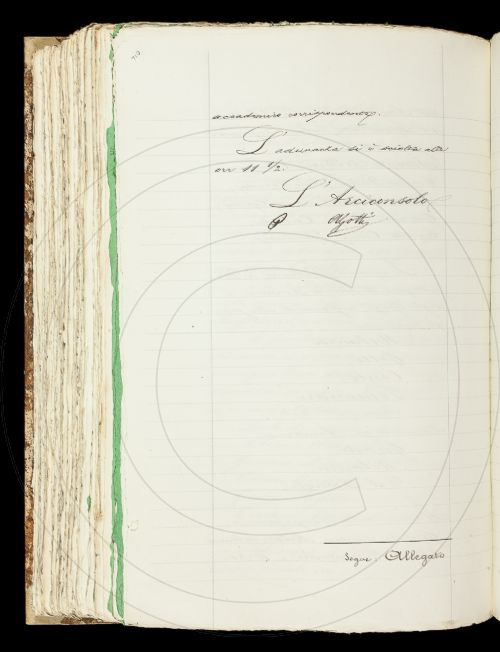 accademico corrispondente.
L'adunanza si è sciolta alle
ore 11 1/2.
L'Arciconsolo
Segue: Allegato